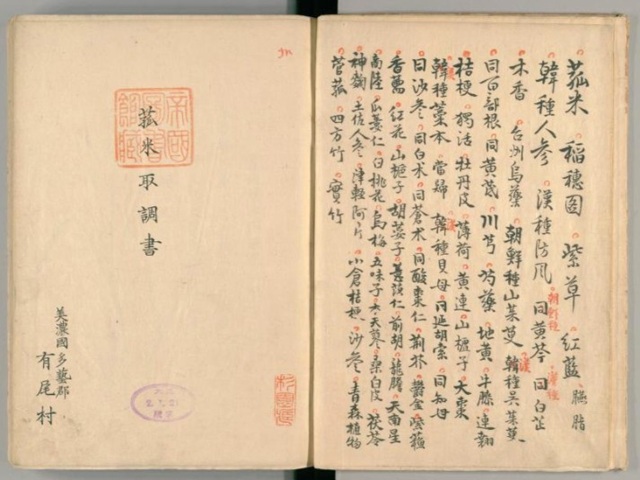 菰米 稲穂図 紫草 紅藍 臙脂
韓種人参 漢種防風 同黄芩 同白芷
朝鮮種
木香 台州烏藥 朝鮮種山茱萸 韓種呉茱萸
同百部根 同黄茋 川芎 芍藥 地黄 牛膝 連翹
桔梗 独活 牡丹皮 薄荷 黄連 山樝子 大棗
韓種藁本 當帰 韓種貝母 同延胡索 同知母
同沙参 同白朮 同蒼朮 同酸棗仁 荊芥 鬱金
香薷 紅花 山梔子 胡荽子 前胡 龍膽 天南星
商陸 瓜蔞仁 白桃花 烏梅 五味子 木天蓼 桑白皮 茯苓
神麹 土佐人参 津軽阿片 小倉桔梗 沙参 青森植物
菅菰 四方竹 實竹
帝國圖書館藏
菰米取調書
美濃國多藝郡
有尾村